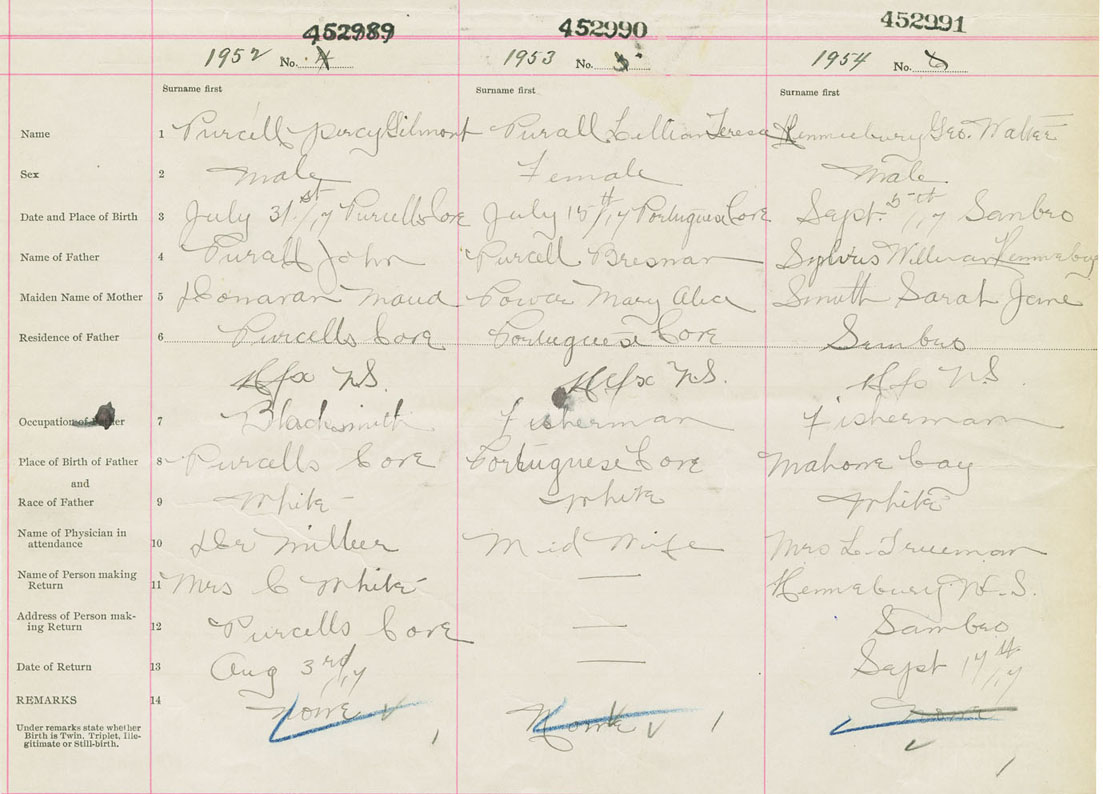 452989 452990 452991
1952 No. 4 1953 No. 5 1954 No.
Surname first Surname first Surname first
Name 1 Purcell Percy Gilmont Purcell Lillian Teresa Hennebury Geo. Walter
Sex 2 Male Female Male
Date and Place of Birth 3 July 31st/17 Purcells Cove July 15th/17 Portuguese Cove Sept. 5th/17 Sambro
Name of Father 4 Purcell John Purcell Bresnan Sylvris William Hennebury
Maiden Name of Mother 5 Donavan Maud Power Mary Alice Smith Sarah Jane
Residence of Father 6 Purcells Cove Portuguese Cove Sambro
Hfx N.S. Hfx N.S. Hfx N.S.
Occupation of Father 7 Blacksmith Fisherman Fisherman
Place of Birth of Father 8 Purcells Cove Portuguese Cove Mahone Bay
and
Race of Father 9 White White White
Name of Physician in attendance 10 Dr Miller Mid Wife Mrs L. Trueman
Name of Person making Return 11 Mrs C White — Hennebury W. S.
Address of Person making Return 12 Purcells Cove — Sambro
Date of Return 13 Aug 3rd/17 — Sept 17th/17
REMARKS 14 None None None
Under remarks state whether
Birth is Twin, Triplet, Ille-
gitimate or Still-birth.